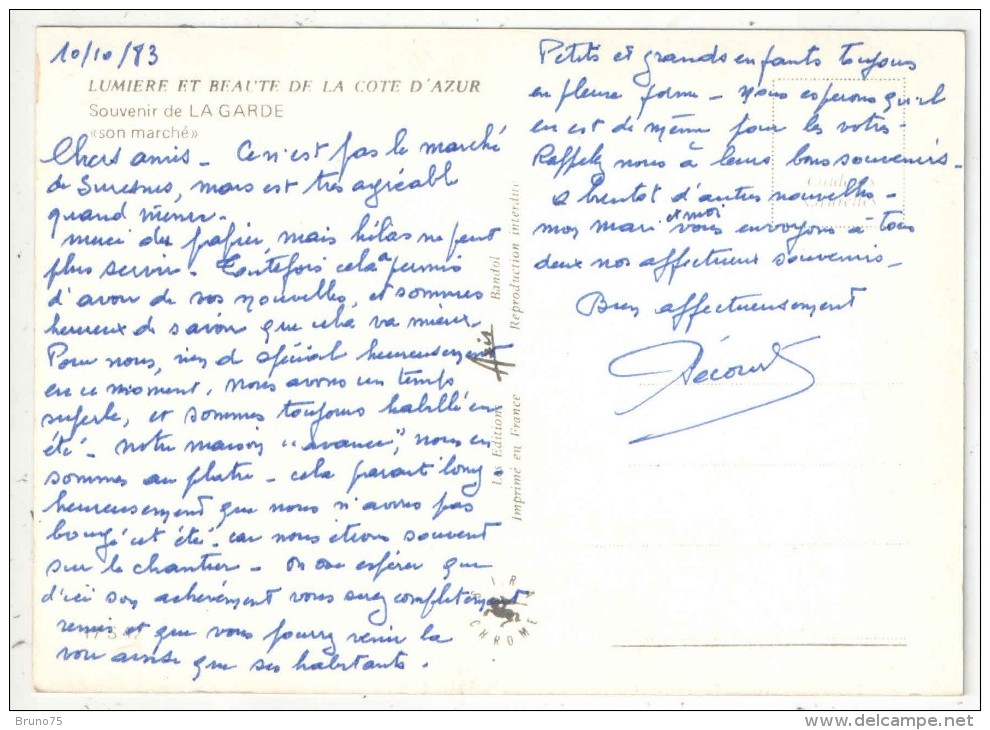 10/10/83
LUMIERE ET BEAUTE DE LA COTE D'AZUR
Souvenir de LA GARDE
«son marché»
Chers amis - Ce n'est pas le marché
de Suresnes, mais est très agréable
quand même.
Merci du papier, mais hélas ne peut
plus servir - Toutefois cela a permis
d'avoir de vos nouvelles, et sommes
heureux de savoir que cela va mieux.
Pour nous, rien de spécial heureusement
en ce moment, nous avons un temps
superbe, et sommes toujours habillé en
été - Notre maison "avance", nous en
sommes au plâtre - cela parait long
heureusement que nous n'avons pas
bougé cet été, car nous étions souvent
sur le chantier - On ose espérer que
d'ici son achèvement vous serez complètement
remis et que vous pourrez venir la
voir ainsi que ses habitants.
Petits et grands enfants toujours
en pleine forme - Nous espérons qu'il
en est de même pour les votres -
Rappelez nous à leurs bons souvenirs -
A bientôt d'autres nouvelles -
mon mari et moi vous envoyons à tous
deux nos affectueux souvenirs -
Bien affectueusement
Les Editions Azis Bandol
Imprimé en France Reproduction interdite
CHROME
Bruno75
www.delcampe.net